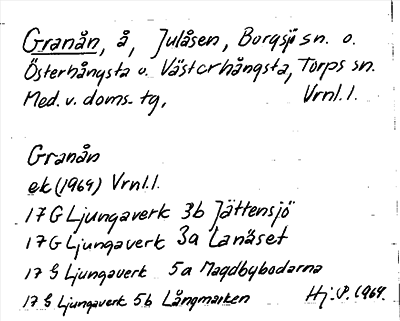 Granån, å, Julåsen, Borgsjö sn. o.
Österhångsta o. Västerhångsta, Torps sn.
Med. v. doms. tg, Vrnl. l.
Granån
ek (1964) Vrnl. l.
17 G Ljungaverk 3b Jättensjö
17 G Ljungaverk 3a Lanäset
17 G Ljungaverk 5a Magdbybodarna
17 G Ljungaverk 5b Långmarken Hj: P. 1964.